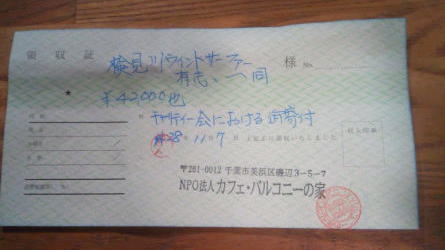 領収証
検見川ウィンドサーファー 様 No.
有志、一同
★ ¥42,000也
但 チャリティー会における御寄付
28年11月7日 上記正に領収いたしました
内訳
収入印紙
〒261-0012 千葉市美浜区磯辺3-5-7
NPO法人 カフェ・バルコニーの家